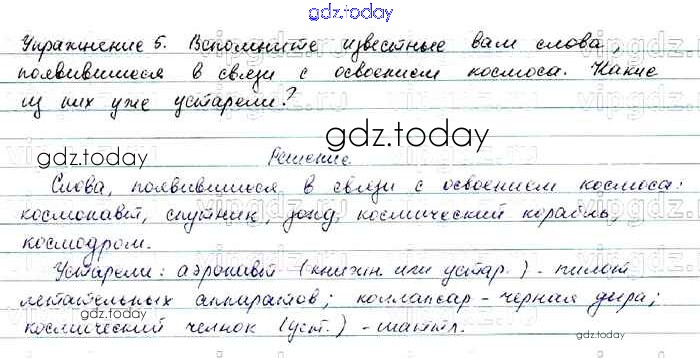 gdz.today
Упражнение 5. Вспомните известные вам слова,
появившиеся в связи с освоением космоса. Какие
из них уже устарели?
gdz.today
gdz.today
Решение
Слова, появившиеся в связи с освоением космоса:
космонавт, спутник, зонд, космический корабль,
космодром.
Устарели: аэронавт (книжн. или устар.) - пилот
летательных аппаратов; коллапсар - черная дыра;
космический челнок (уст.) - шаттл.
gdz.today